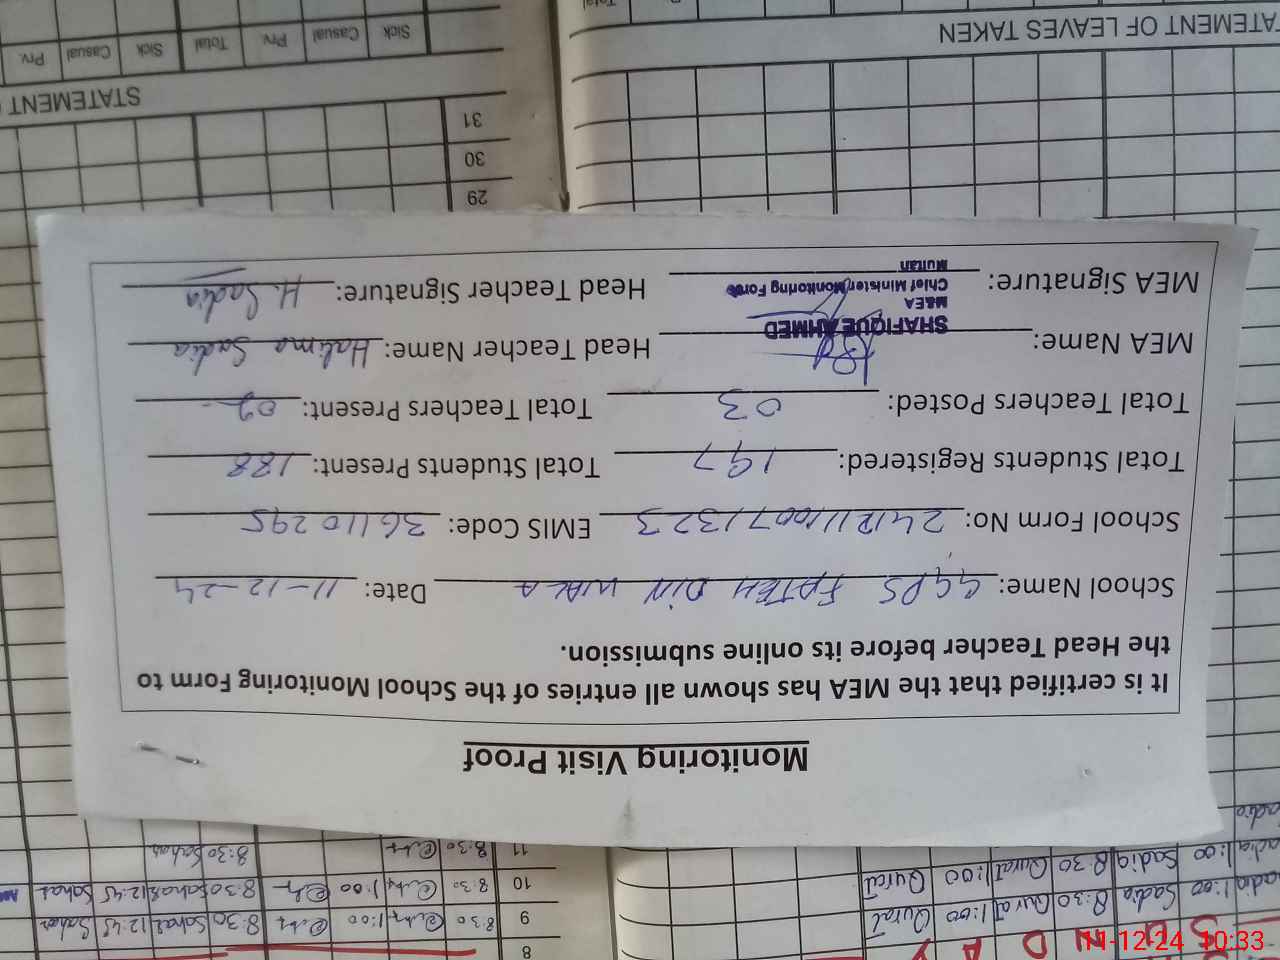 Monitoring Visit Proof
It is certified that the MEA has shown all entries of the School Monitoring Form to
the Head Teacher before its online submission.
School Name: GGPS FATEH DIN WALA Date: 11-12-24
School Form No: EMIS Code: 36110295
Total Students Registered: 197 Total Students Present: 188
Total Teachers Posted: 03 Total Teachers Present: 02
MEA Name: Head Teacher Name: Halima Sadia
SHAFIQUE AHMED
M&EA
Chief Minister Monitoring Force
Multan
MEA Signature: Head Teacher Signature: H. Sadia
29
30
31
STATEMENT
Sick Casual Prv. Total Sick Casual Prv.
ATEMENT OF LEAVES TAKEN
Total
8
9 8:30 1:00 8:30 Sahar 12:45 Sahar
10 8:30 1:00 8:30 Sahar 12:45 Sahar
11 8:30 8:30 Sahar
S U N D A Y
adia 1:00 Sadia 8:30 Qurat 1:00 Qurat
adia 1:00 Sadia 8:30 Qurat 1:00 Qurat
adia
11-12-24 10:33